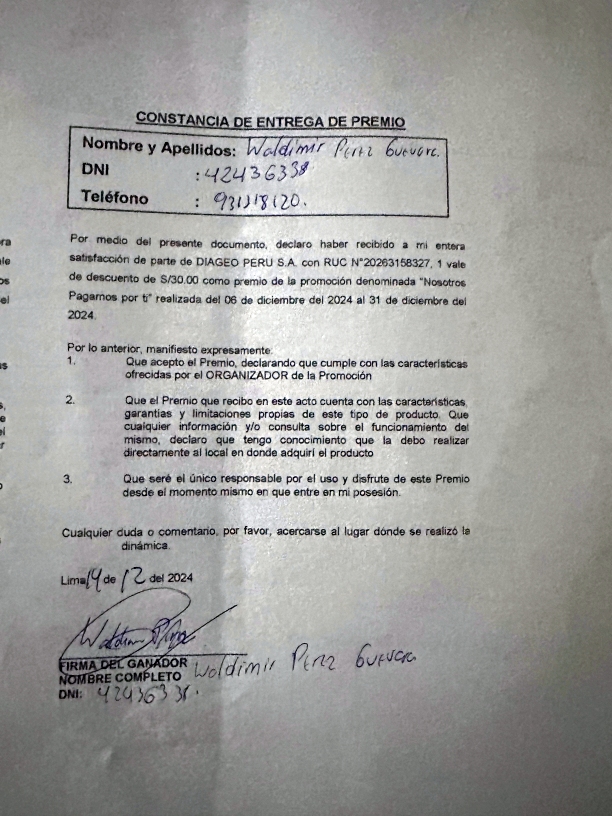 CONSTANCIA DE ENTREGA DE PREMIO
Nombre y Apellidos: Waldimir Perez Guevara.
DNI : 42436338
Teléfono : 931318120.
Por medio del presente documento, declaro haber recibido a mi entera
satisfacción de parte de DIAGEO PERU S.A. con RUC N°20263158327, 1 vale
de descuento de S/30.00 como premio de la promoción denominada "Nosotros
Pagamos por ti" realizada del 06 de diciembre del 2024 al 31 de diciembre del
2024.
Por lo anterior, manifiesto expresamente:
1. Que acepto el Premio, declarando que cumple con las características
ofrecidas por el ORGANIZADOR de la Promoción
2. Que el Premio que recibo en este acto cuenta con las características,
garantías y limitaciones propias de este tipo de producto. Que
cualquier información y/o consulta sobre el funcionamiento del
mismo, declaro que tengo conocimiento que la debo realizar
directamente al local en donde adquirí el producto
3. Que seré el único responsable por el uso y disfrute de este Premio
desde el momento mismo en que entre en mi posesión.
Cualquier duda o comentario, por favor, acercarse al lugar dónde se realizó la
dinámica.
Lima 14 de 12 del 2024
Waldimir Perez
FIRMA DEL GANADOR
NOMBRE COMPLETO Waldimir Perez Guevara
DNI: 42436338.